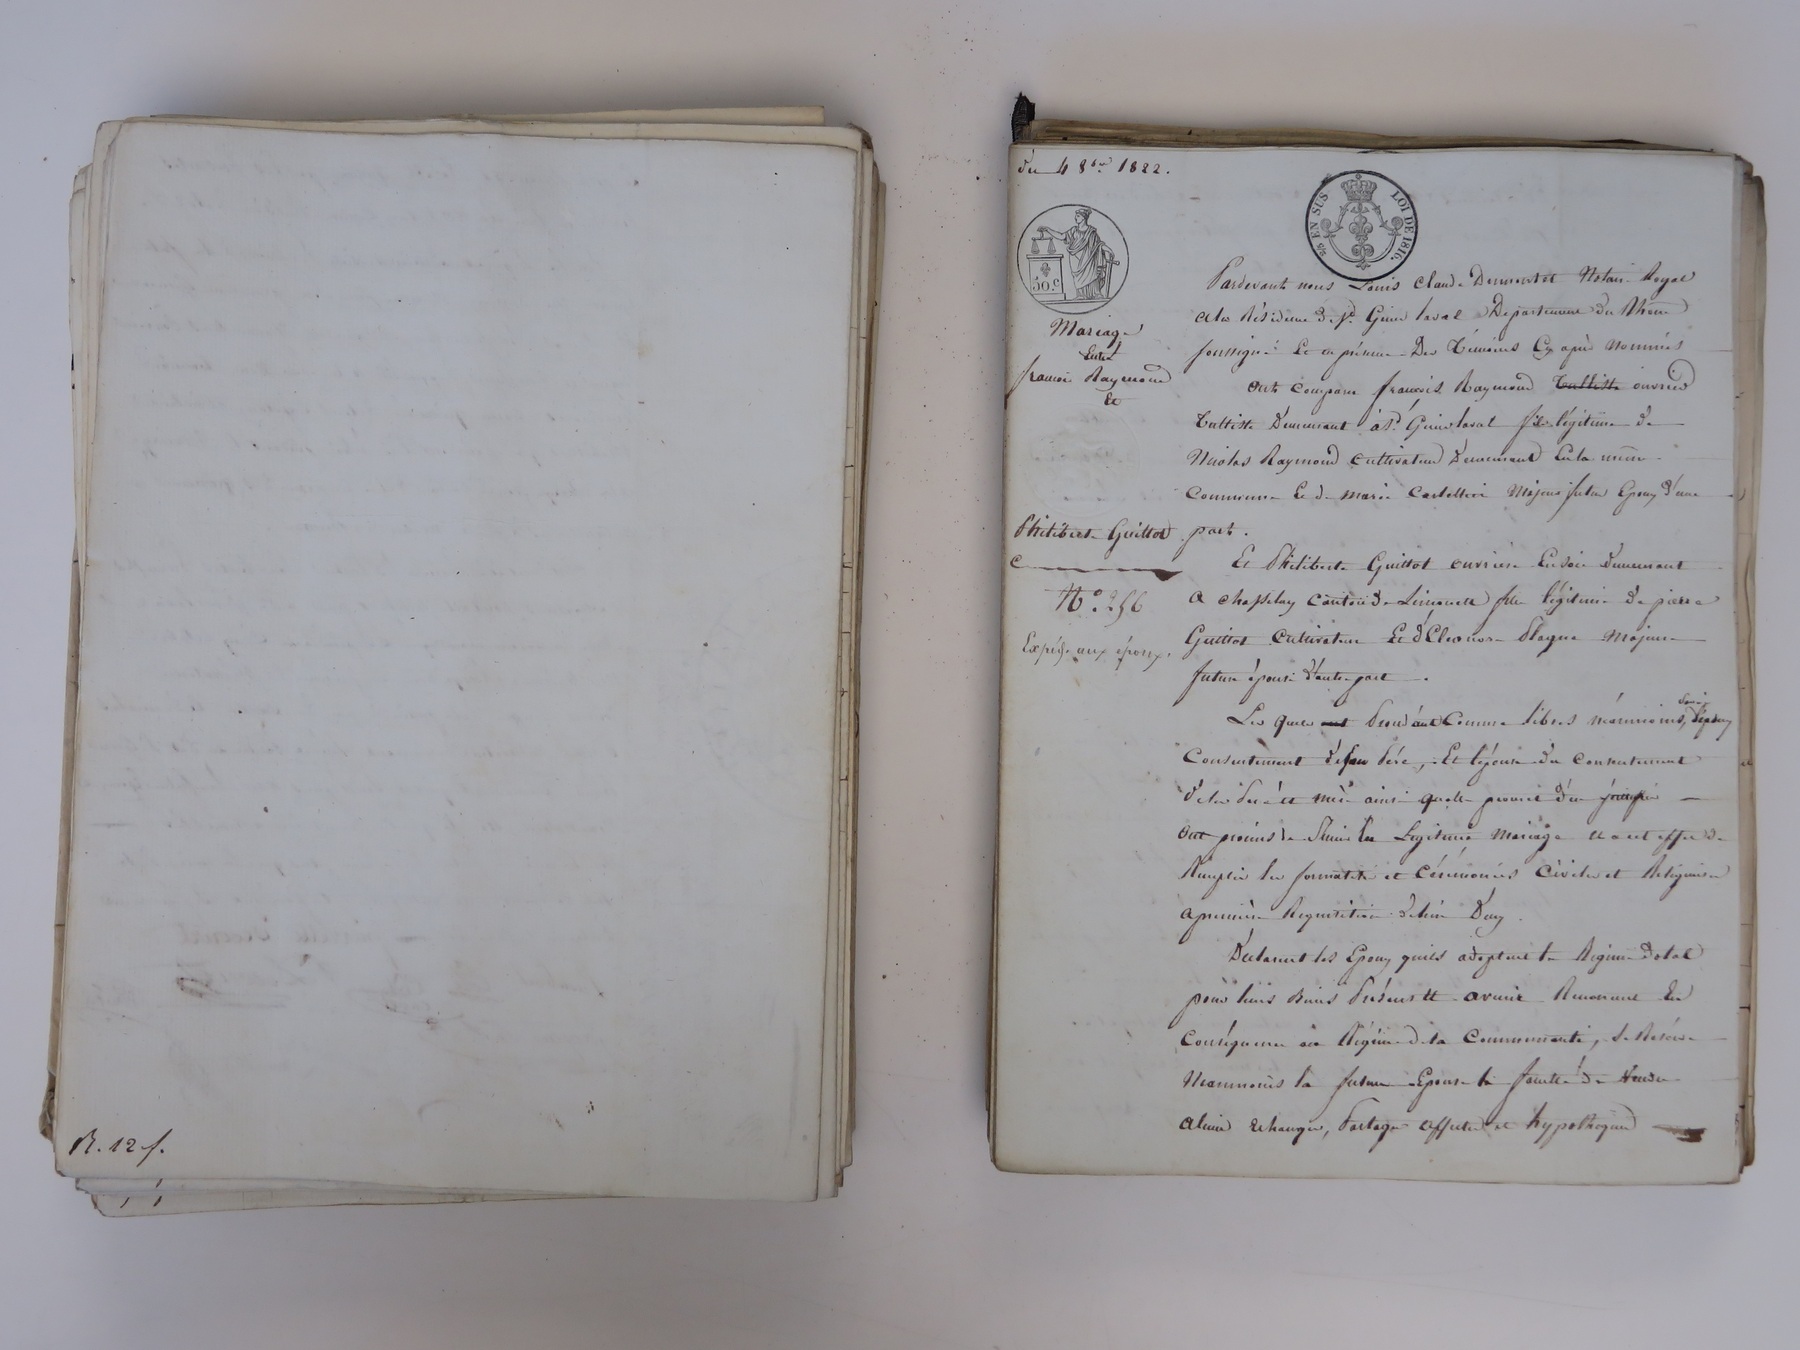 R. 12 f.
du 4 8bre 1822.
EN SUS LOI DE 1816.
50.c
Mariage
Entre
francois Raymond
Et
Philiberte Guillot
N.o 256
Expéd. aux époux.
Pardevant nous Louis Claude Notaire Royal
a la Résidence de St. Genis laval Département du Rhône
soussigné Et en présence Des témoins Cy après Nommés
Ont comparu françois Raymond tulliste ouvrier
tulliste Demeurant à St. Genis laval fils légitime de
Nicolas Raymond cultivateur Demeurant En la même
Commune Et de marie Majeur futur Epoux d'une
part.
Et Philiberte Guillot ouvrière En soie Demeurant
a Chasselay Canton de Limonest fille légitime de pierre
Guillot cultivateur Et d'Eleonor Majeure
future épouse d'autre part.
Les quels Procédant Comme libres néanmoins,
Consentement de son Père, Et l'épouse du consentement
de ses Père et mère ainsi quelle promet d'en
Ont promis de S'unir En Légitime Mariage et a cet effet de
Remplir les formalités et Cérémonies Civiles et Religieuses
a première Réquisition de l'un D'eux.
Déclarent les Epoux quils adoptent le Régime Dotal
pour leurs Biens Présents et avenir Renoncent En
Conséquence au Régime de la Communauté, se Réserve
Néanmoins la future Epouse la faculté de Vendre
aliéner Echanger, Partager affecter et hypothéquer